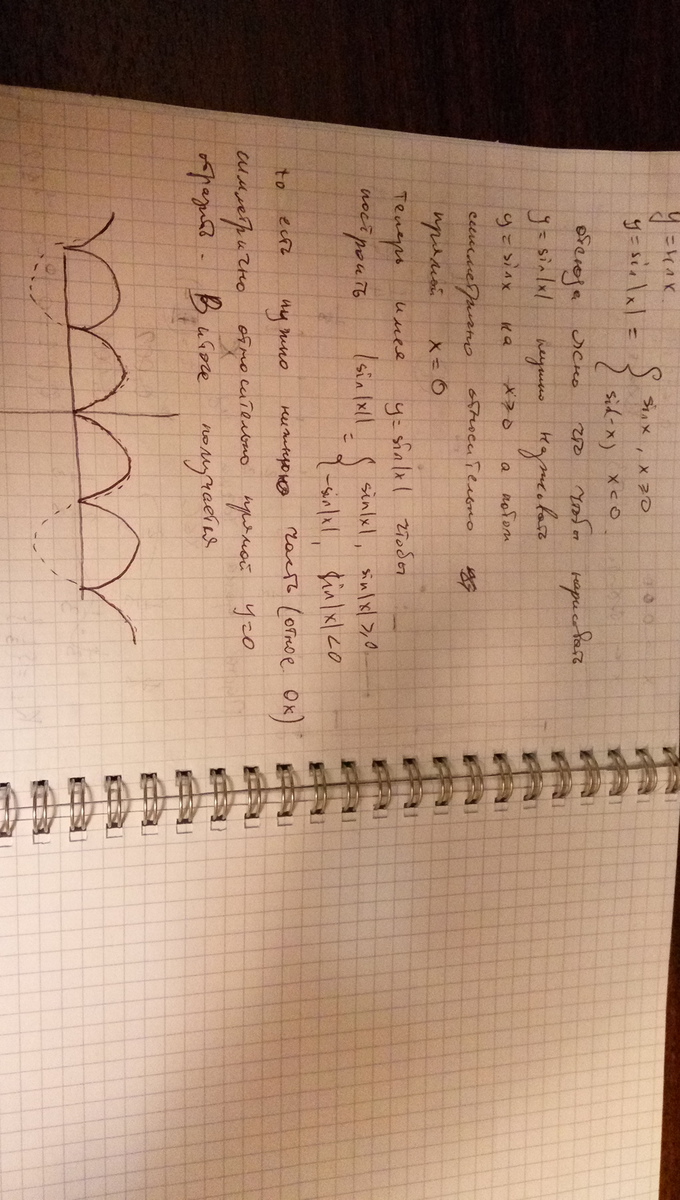 y = sin x.
y = sin|x| = { sin x, x ≥ 0
sin(-x) x < 0.
отсюда ясно что чтобы нарисовать
y = sin|x| нужно нарисовать
y = sin x на x ≥ 0 а потом
симметрично относительно
прямой x = 0
Теперь имея y = sin|x| чтобы
построить |sin|x|| = { sin|x|, sin|x| ≥ 0
-sin|x|, sin|x| < 0
то есть нужно нижнюю часть (относ. Ox)
симметрично относительно прямой y = 0
отразить. В итоге получается